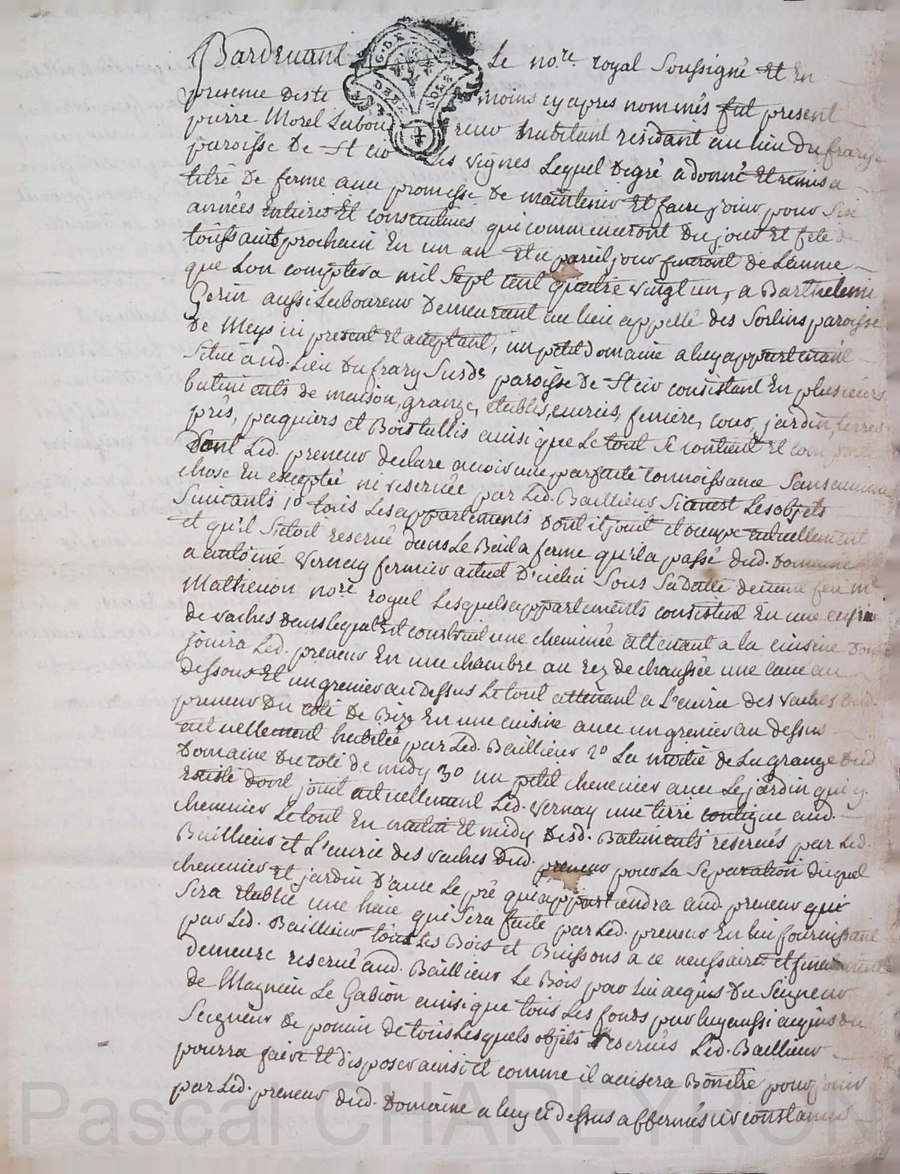 Pardevant Le no.re royal Soussigné Et En
presence des te moins cy apres nommés fut present
pierre Morel Labou reur habitant residant au lieu du frary
paroisse De St cir Les vignes Lequel De gré a donné Et remis a
titre De ferme avec promesse De maintenir Et faire jouir pour Six
années Entieres Et consecutives qui commenceront Du jour Et fete de
toussaint prochain En un an Et a pareil jour finiront de Lannée
que Lon comptera mil Sept cent quatre vingt un, a Barthelemi
Gorin aussi Laboureur Demeurant au lieu appellé des Sorlins paroisse
De Meys ici present Et acceptant, un petit domaine a luy appartenant
Situé aud. Lieu Du frary Susd. paroisse De St cir consistant En plusieurs
batiments de maison, grange, etables, ecuries, feniere, cour, jardin, terres
prés, paquiers et Bois taillis ainsi que Le tout Se contient Et comporte
Dont Led. preneur declare avoir une parfaite connoissance Sans aucune
chose En excepter ni reserver par Led. Baillieur Si ce nest Les objets
Suivants 1° tous Les appartements Dont il jouit et occupe actuellement
et qu'il S'etoit reservé dans Le Bail a ferme qu'il a passé dud. Domaine
a antoine Vernay fermier actuel D'icelui Sous Sa Datte devant feu M.e
Mathevon no.re royal Lesquels appartements consistent En une ecurie
de vaches dans Lequel Est construit une cheminée attenant a la cuisine Dont
jouira Led. preneur En une chambre au rez de chaussée une cave au
dessous Et un grenier au Dessus Le tout attenant a L'ecurie des vaches dud.
preneur Du coté De Bize En une cuisine avec un grenier au dessus
actuellement habitée par Led. Baillieur 2° La moitié de La grange dud
Domaine Du coté de midy 3° un petit chenevier avec Le jardin qui y
Existe dont jouit actuellement Led. Vernay une terre contigue aud.
chenevier Le tout En matin Et midy Desd. Batiments reservés par Led.
Baillieur et L'ecurie des vaches Dud. preneur pour La Separation duquel
chenevier et jardin D'avec Le pré qui appartiendra aud preneur qui
Sera etablie une haie qui Sera faite par Led. preneur En lui fournissant
par Led. Baillieur tous Les Bois et Buissons a ce necessaires et finalement
demeure reservé aud. Baillieur Le Bois par lui acquis Du Seigneur
de Magnieu Le Gabion ainsi que tous Les fonds par luy aussi acquis du
Seigneur De pomin de tous Lesquels objets reservés Led. Baillieur
pourra faire Et disposer ainsi et comme il avisera Bon etre pour jouir
par Led. preneur dud. Domaine a luy ci dessus affermés
Pascal CHARLEYRON